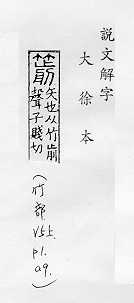 說文解字
大徐本
箭
矢也从竹前
聲子賤切
(竹部
V5上.
p1.
a9.)